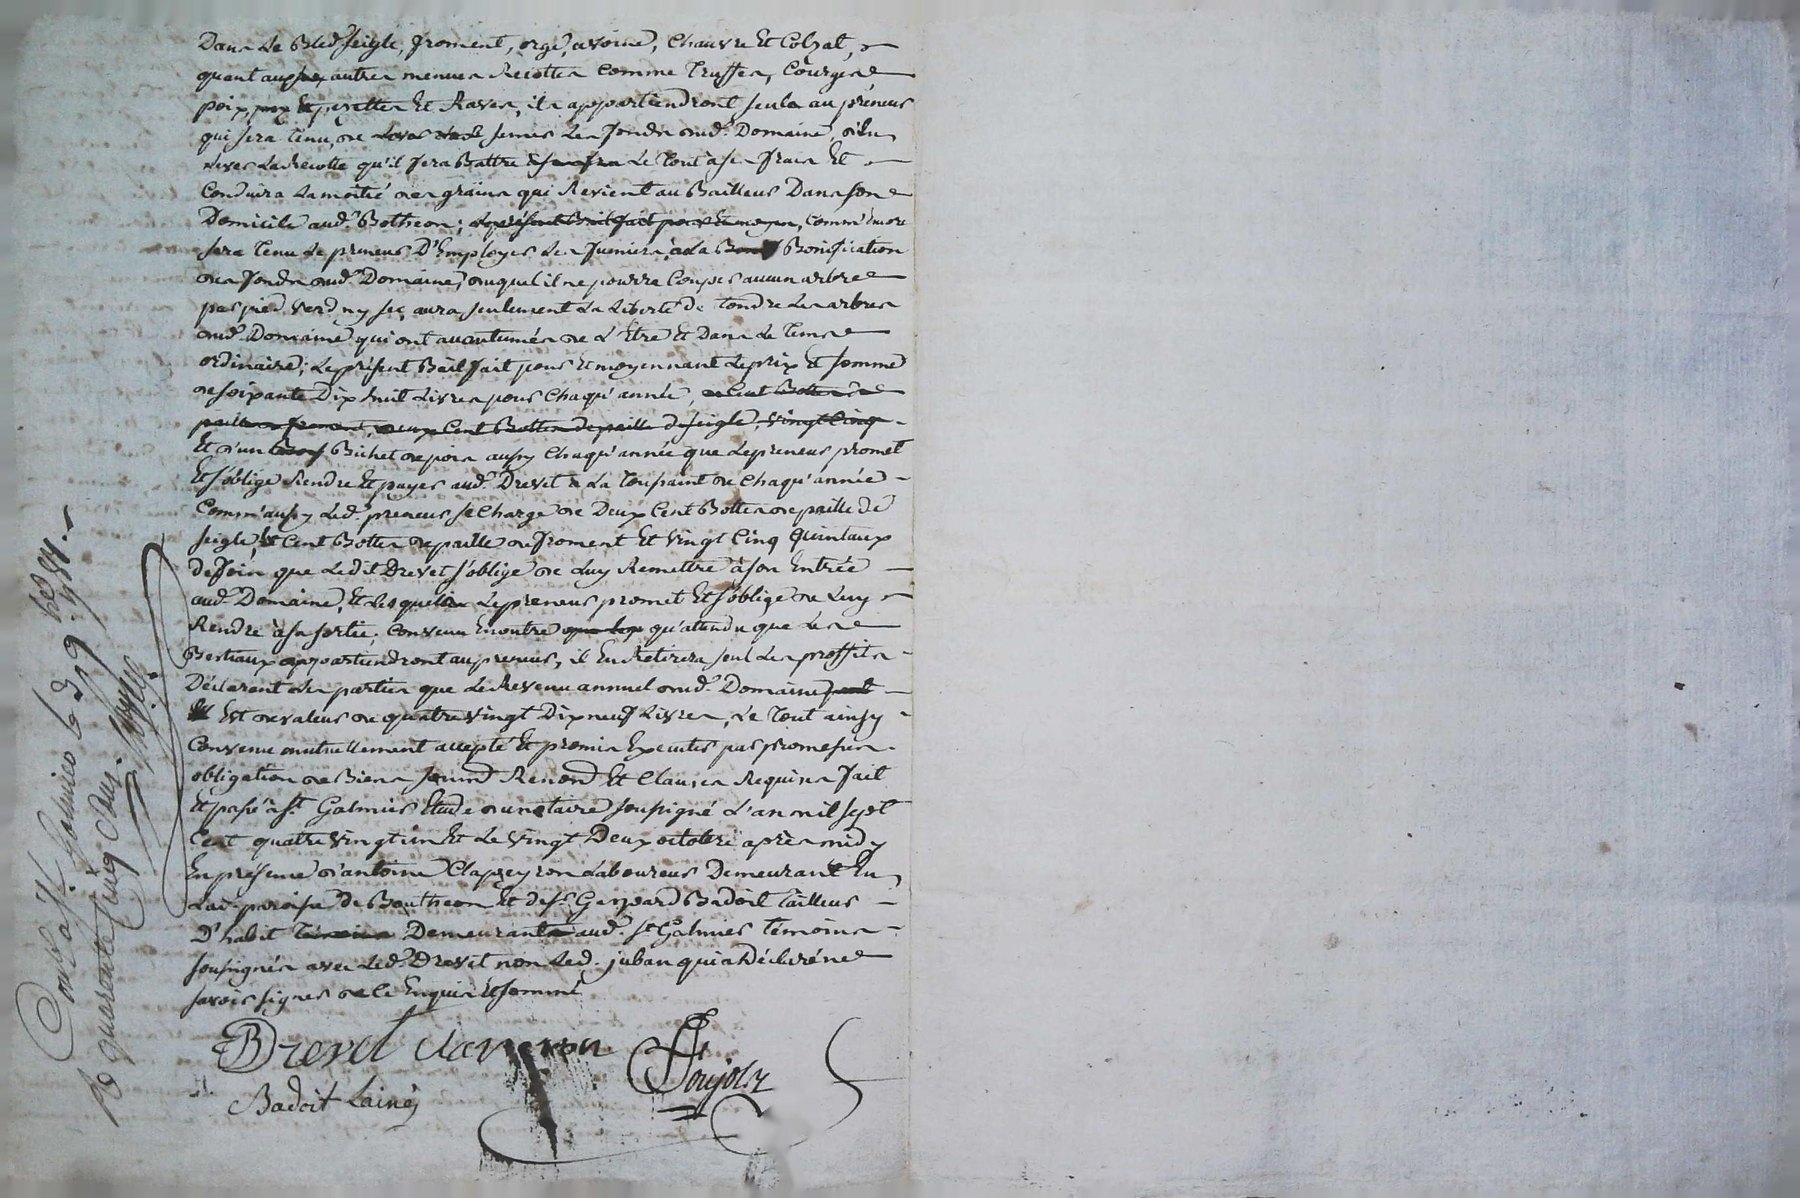 Dans le Bled seigle, froment, orge, avoine, Chanvre et Colzat,
quant aux autres menues Recottes Comme Truffes, Courges
poix, et Raves, ils appartiendront seuls au preneur
qui sera tenu de semer les fonds dud. Domaine, d'en
lever la Recolte qu'il fera Battre le tout à ses frais Et
Conduira la moitié des grains qui Revient au Bailleur Dans son
Domicile aud. Botheon; Le présent Bail fait pour Et moyen, Comm'encore
sera tenu le preneur D'Employer les fumiers à la Bonification
des fonds dud. Domaine, duquel il ne pourra Couper aucun arbre
par pied verd ny sec, aura seulement la Liberté de tondre les arbres
dud. Domaine qui ont accoutumés de l'Etre Et Dans le tems
ordinaire; Le présent Bail fait pour Et moyennant le prix Et somme
de soixante Dix huit Livres pour Chaqu'année, Cent Bottes de
paille froment, deux Cent Bottes de paille de seigle, vingt Cinq
Et d'un Bichet de pois aussy Chaqu'année que le preneur promet
Et s'oblige Rendre Et payer aud. Drevet à la Toussaint de Chaqu'année
Comm'aussy led. preneur se Charge de Deux Cent Bottes de paille de
seigle, Et Cent Bottes de paille de froment Et vingt Cinq quintaux
de foin que Ledit Drevet s'oblige de luy Remettre à son Entrée
aud. Domaine, Et lesquels le preneur promet Et s'oblige de luy
Rendre à sa sortie. Convenu Enoutre qu'attendu que les
Bestiaux appartiendront au preneur, il En Retirera seul les proffits
Déclarent les parties que le Revenu annuel dud. Domaine
Est de valeur de quatre vingt Dix neuf Livres, Le tout ainsy
Convenu mutuellement accepté Et promis Executer par promesses
obligation de Biens Renond. Et Clauses Requises fait
Et passé à St. Galmier Etude du notaire soussigné L'an mil sept
Cent quatre vingt un Et le vingt Deux octobre après midy
En présence d'antoine Clapeyron Laboureur Demeurant En
Lad. paroisse de Boutheon Et de sr. Gaspard Badoit tailleur
D'habit Demeurants aud. St Galmier témoins
soussignés avec led. Drevet non led. juban qui a Déclaré ne
savoir signer de ce Enquis Et sommé
Drevet Claperon
Badoit Lainé
Poujolz
à St. Galmier le 9bre 1781
R quarante Cinq